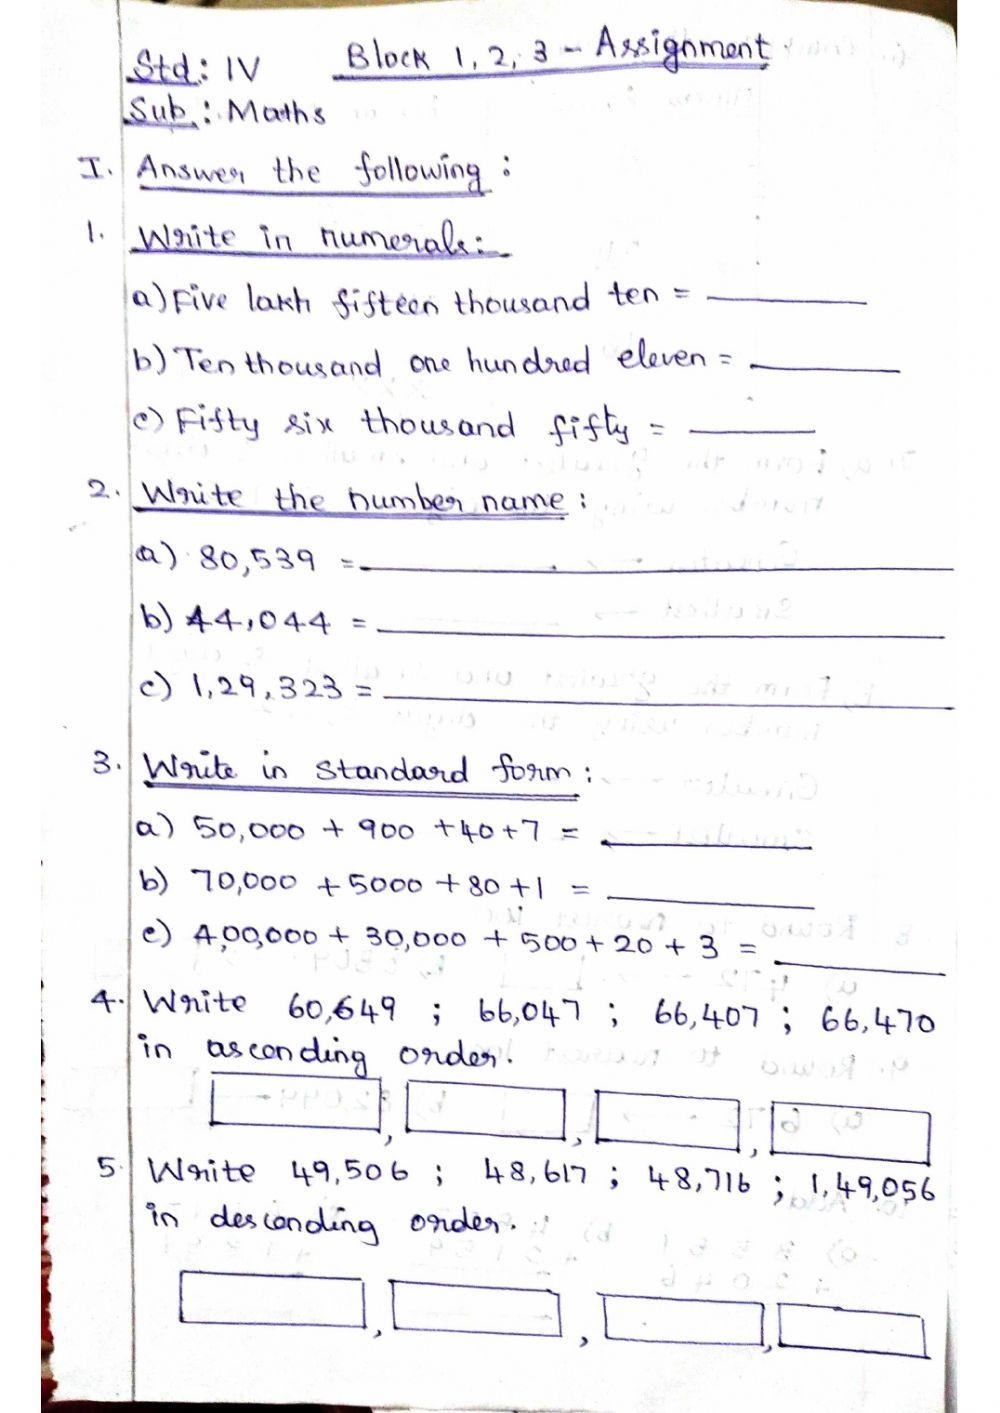 Std: IV Block 1, 2, 3 - Assignment
Sub.: Maths
I. Answer the following:
1. Write in numerals:
a) Five lakh fifteen thousand ten = 
b) Ten thousand one hundred eleven = 
c) Fifty six thousand fifty = 
2. Write the number name:
a) 80,539 = 
b) 44,044 = 
c) 1,29,323 = 
3. Write in standard form:
a) 50,000 + 900 + 40 + 7 = 
b) 70,000 + 5000 + 80 + 1 = 
c) 4,00,000 + 30,000 + 500 + 20 + 3 = 
4. Write 60,649 ; 66,047 ; 66,407 ; 66,470
in asconding order.
, , ,
5. Write 49,506 ; 48,617 ; 48,716 ; 1,49,056
in desconding order.
, , ,